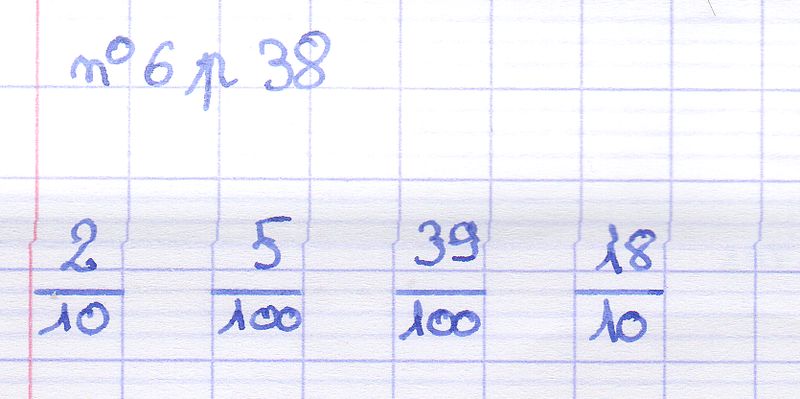 n° 6 p 38
2/10 5/100 39/100 18/10